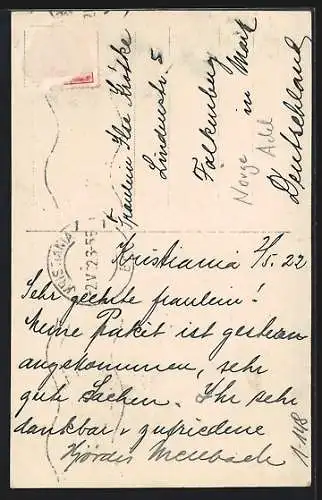 Fräulein Ilse Köthke
Lindenstr. 5
Falkenberg
in Mark
Deutschland
Norge
Adel
KRISTIANIA
2 V 23-5
Kristiania 2/5. 22
Sehr geehrte fraulein!
Meine Paket ist gestern
angekommen, sehr
gute Sachen. Ihr sehr
dankbar & zufriedene
Hjördis Meilbach
1148